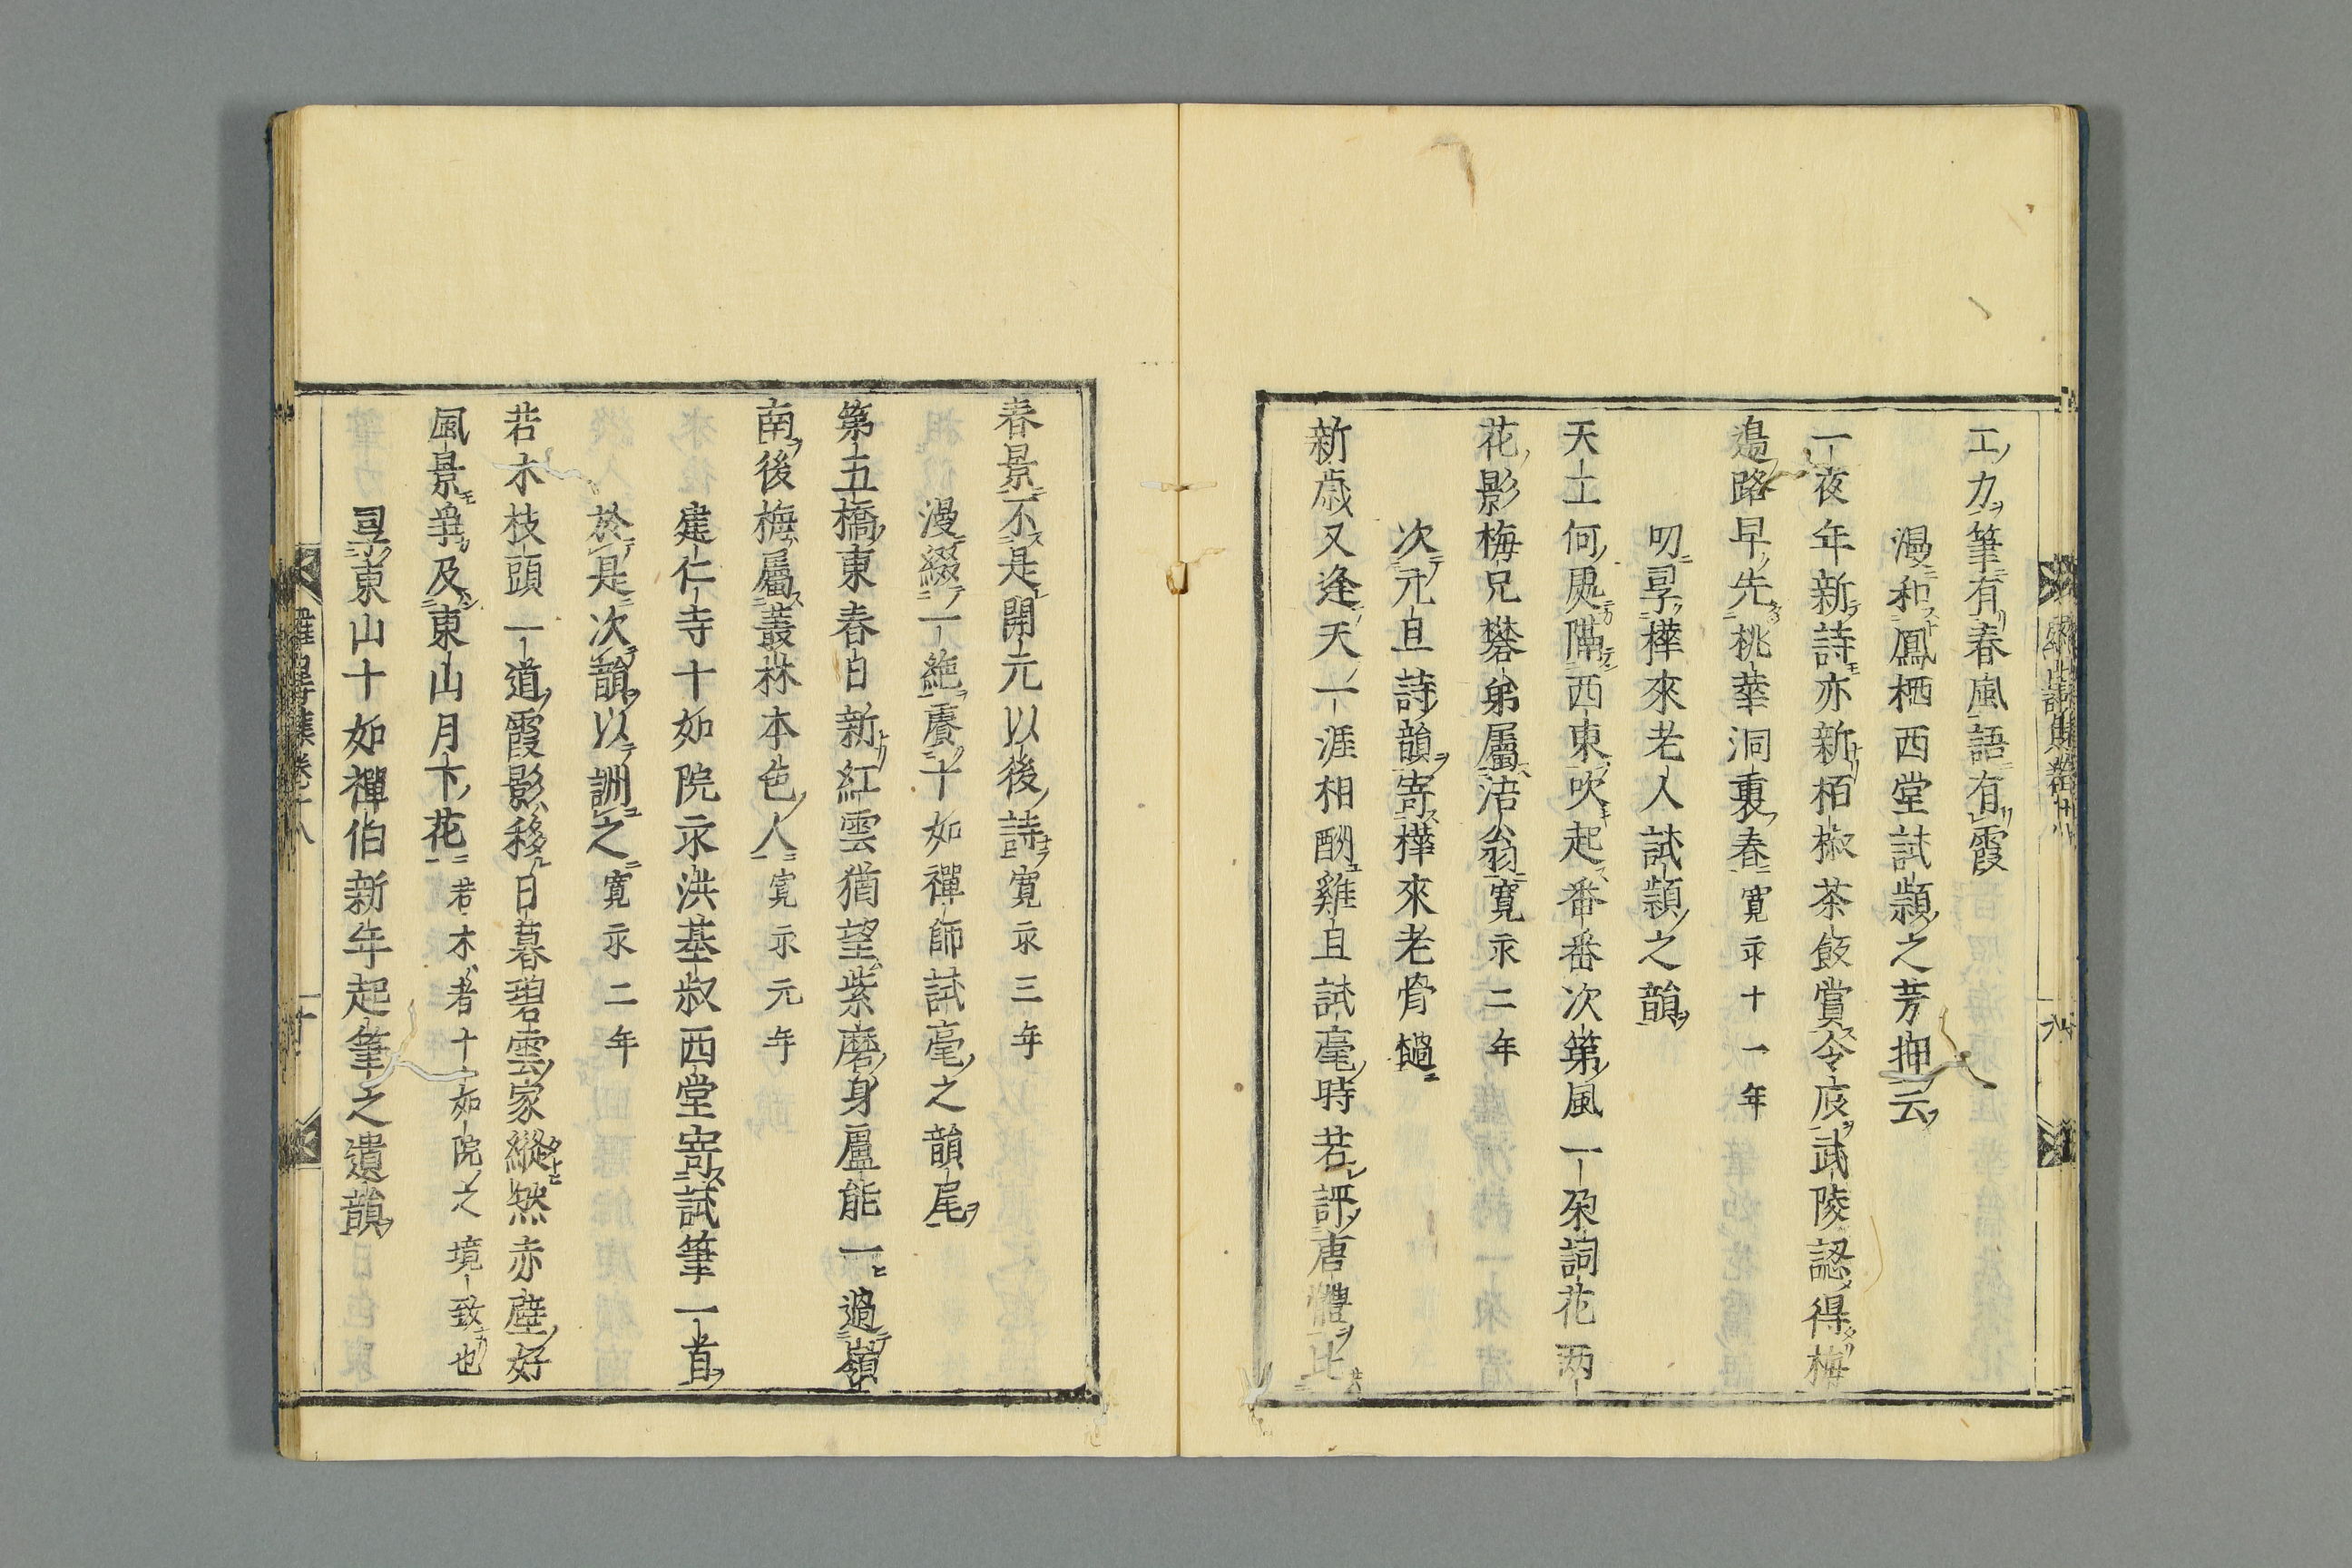 工力筆有春風語有霞
漫和鳳栖西堂試穎之芳押云
一夜年新詩亦新栢椒茶飯賞令辰武陵認得梅
邉路早先桃華洞裏春 寛永十一年
叨寻樺來老人試穎之韻
天工何處隔西東吹起番番次第風一朶詞花两
花影梅兄礬弟屬涪翁 寛永二年
次元旦詩韻寄樺來老骨䭔
新歳又逢天一涯相酬雞旦試毫時若評唐體比
春景不是開元以後詩 寛永三年
漫綴一絶賡十如禪師試毫之韻尾
第五橋東春日新紅雲猶望紫磨身盧能一過嶺
南後梅屬叢林本色人 寛永元年
建仁寺十如院永洪基叔西堂寄試筆一首
於是次韻以詶之 寛永二年
若木枝頭一道霞影移日暮碧雲家縱然赤壁好
風景爭及東山月下花 若木者十如院之境致也
寻東山十如禪伯新年起筆之遺韻